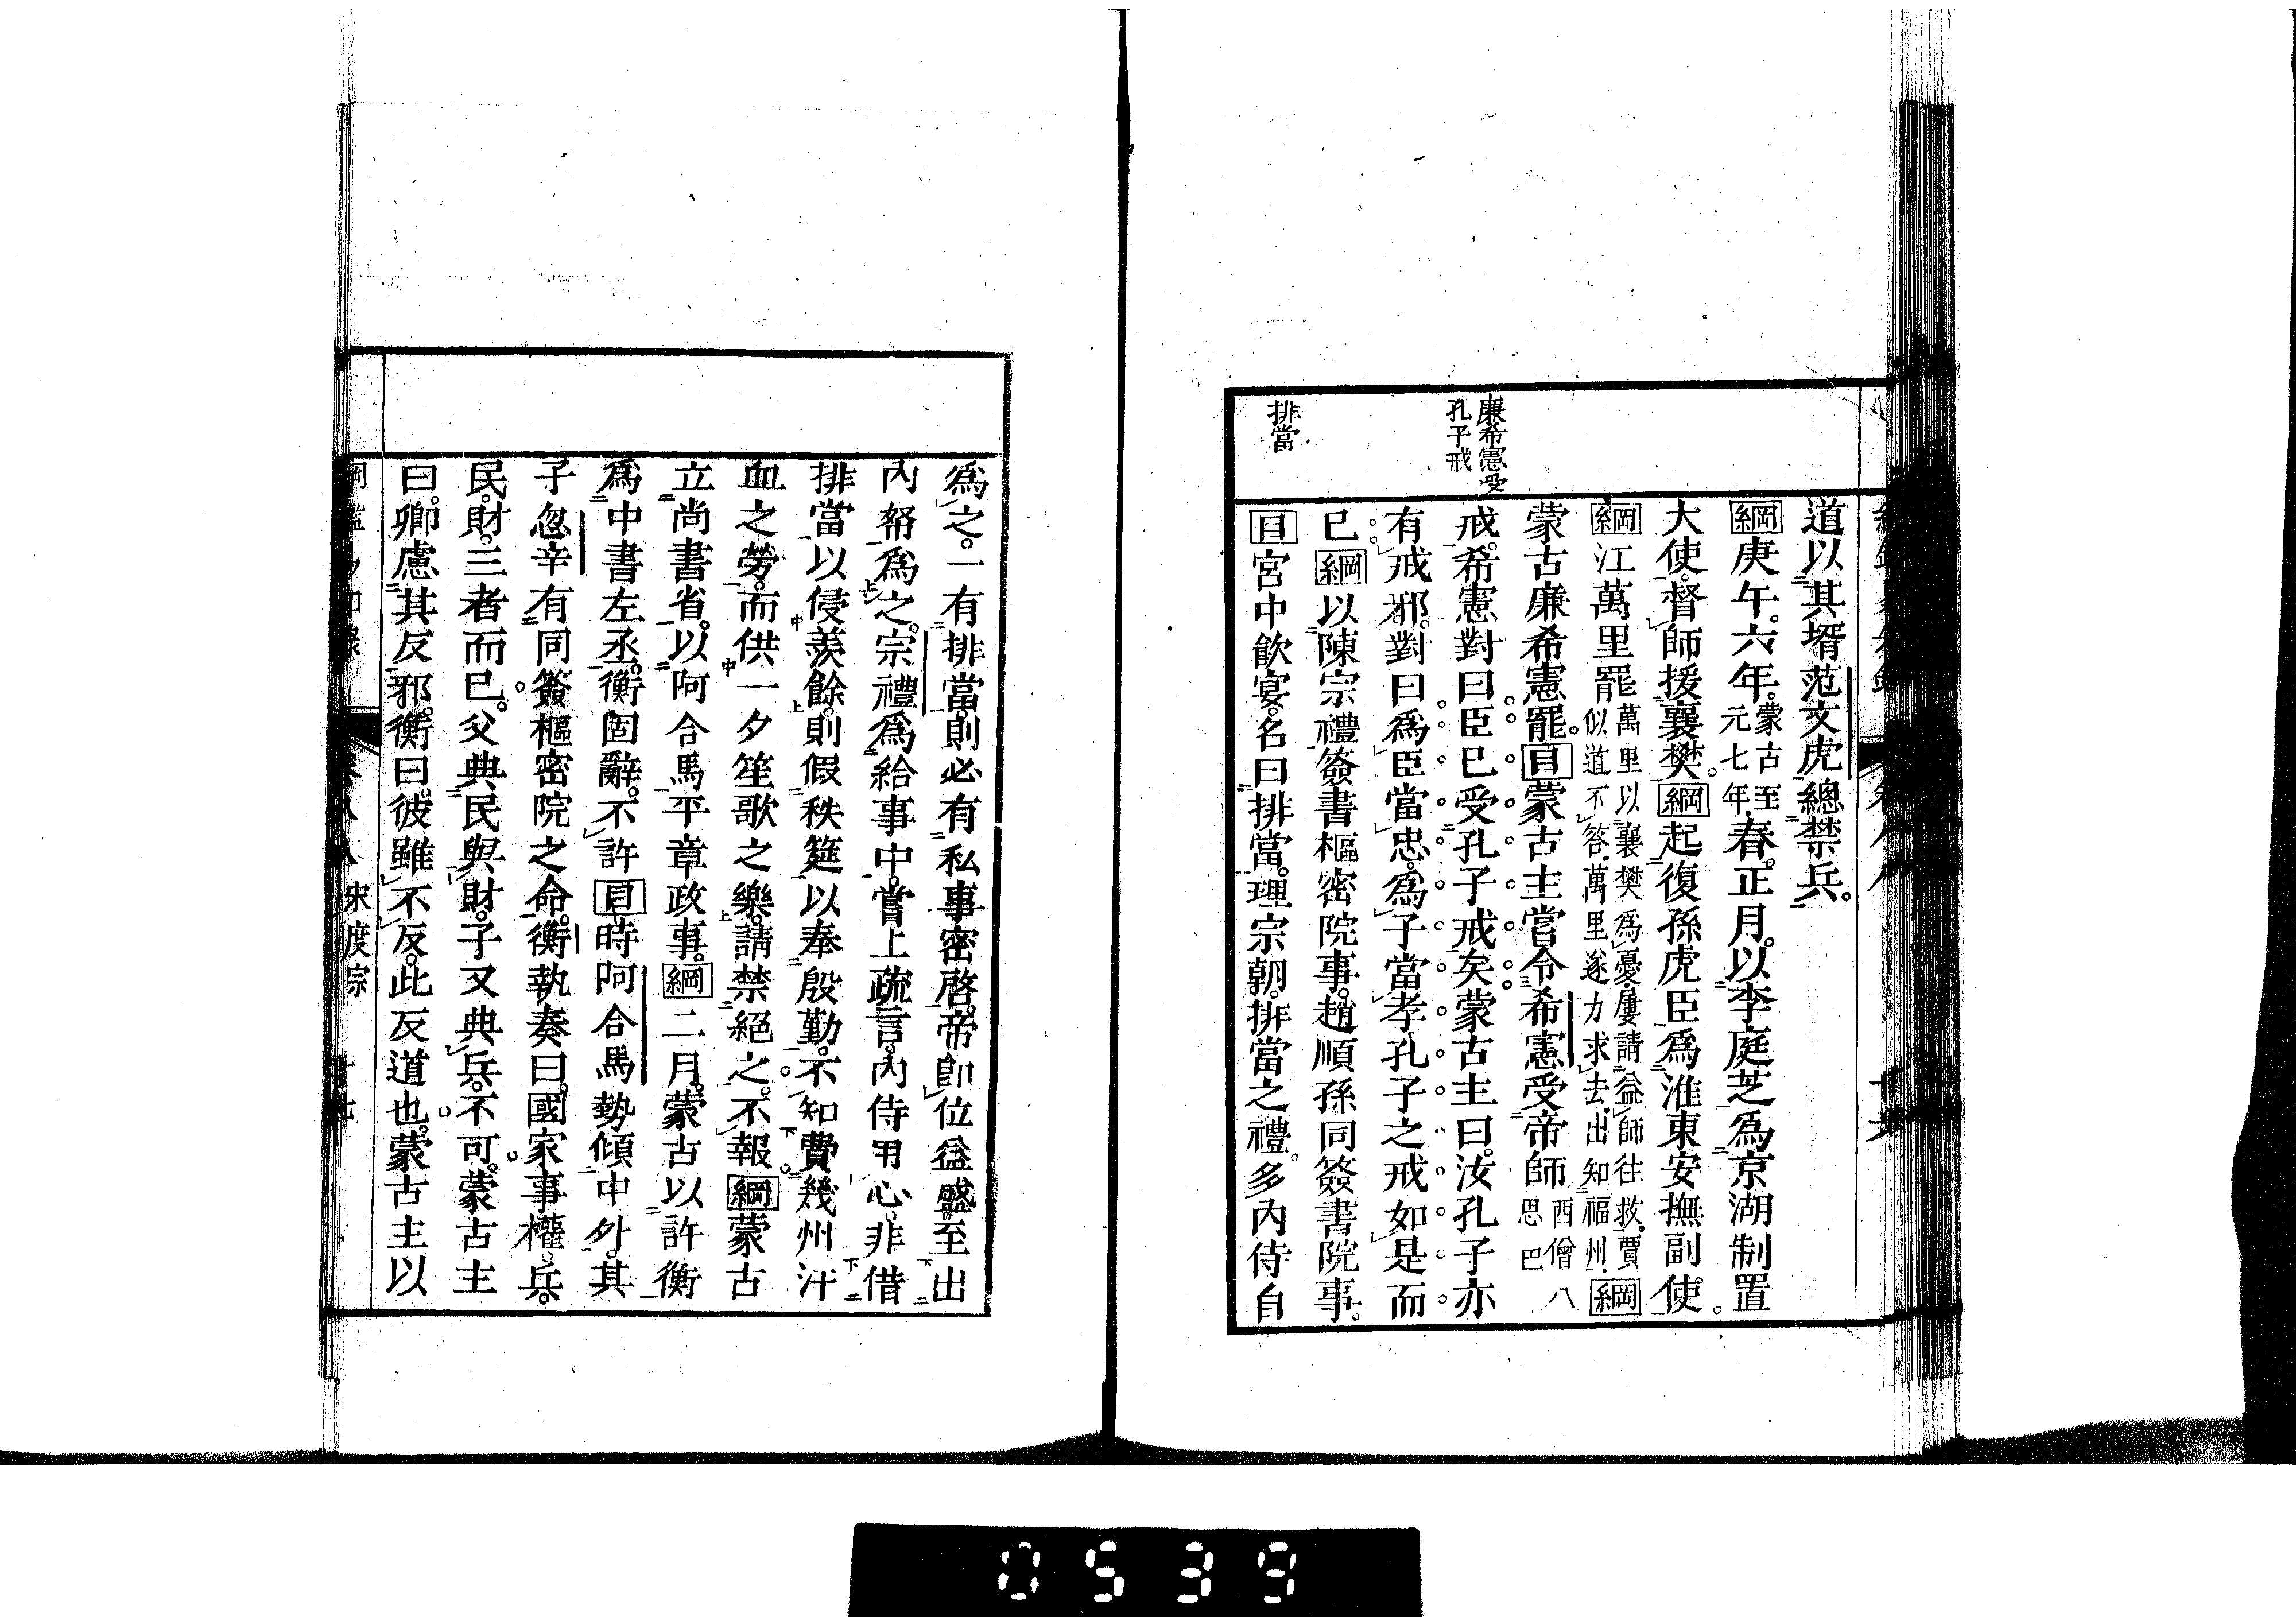 廉希憲受
孔子戒
排當
道以其壻范文虎總禁兵。
綱庚午。六年。蒙古至元七年。春。正月。以李庭芝爲京湖制置
大使。督師援襄樊。綱起復孫虎臣爲淮東安撫副使。
綱江萬里罷萬里以襄樊爲憂。屢請益師往救。賈似道不答。萬里遂力求去。出知福州。綱
蒙古廉希憲罷。目蒙古主嘗令希憲受帝師西僧八思巴
戒。希憲對曰。臣已受孔子戒矣。蒙古主曰。汝孔子亦
有戒邪。對曰。爲臣當忠。爲子當孝。孔子之戒。如是而
已。綱以陳宗禮簽書樞密院事。趙順孫同簽書院事。
目宮中飮宴。名曰排當。理宗朝。排當之禮。多內侍自
爲之。一有排當。則必有私事密啓。帝卽位益盛。至出
內帑爲之。宗禮爲給事中。嘗上疏言。內侍用心。非借
排當以侵羨餘。則假秩筵以奉殷勤。不知費幾州汗
血之勞。而供一夕笙歌之樂。請禁絕之。不報。綱蒙古
立尚書省。以阿合馬平章政事。綱二月。蒙古以許衡
爲中書左丞。衡固辭。不許目時阿合馬勢傾中外。其
子忽辛有同簽樞密院之命。衡執奏曰。國家事權。兵。
民。財。三者而已。父典民與財。子又典兵。不可。蒙古主
曰。卿慮其反邪。衡曰。彼雖不反。此反道也。蒙古主以
宋度宗
0539